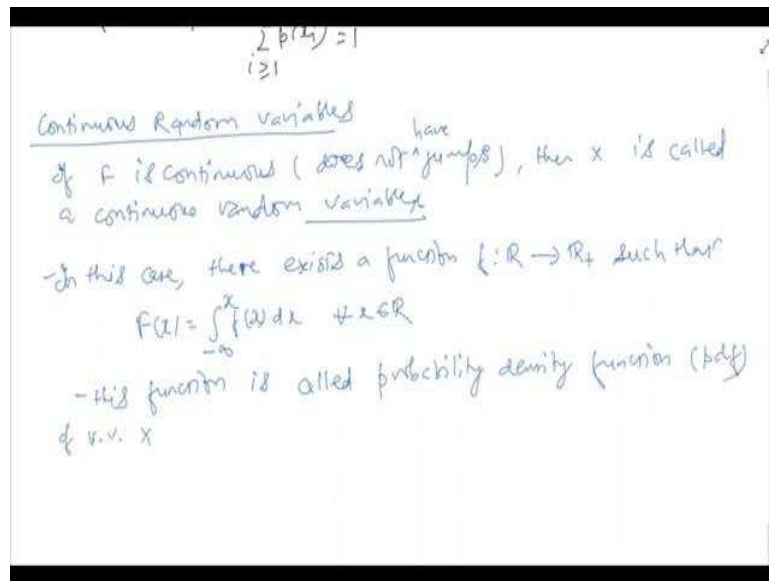 ∑ p(xᵢ) = 1
i≥1
Continuous Random variables
have
If F is continuous ( does not ^ jumps), then X is called
a continuous random variable
- In this case, there exists a function f : R → R+ such that
F(x) = ∫_{-∞}^{x} f(x) dx ∀ x ∈ R
- this function is called probability density function (pdf)
of r.v. X